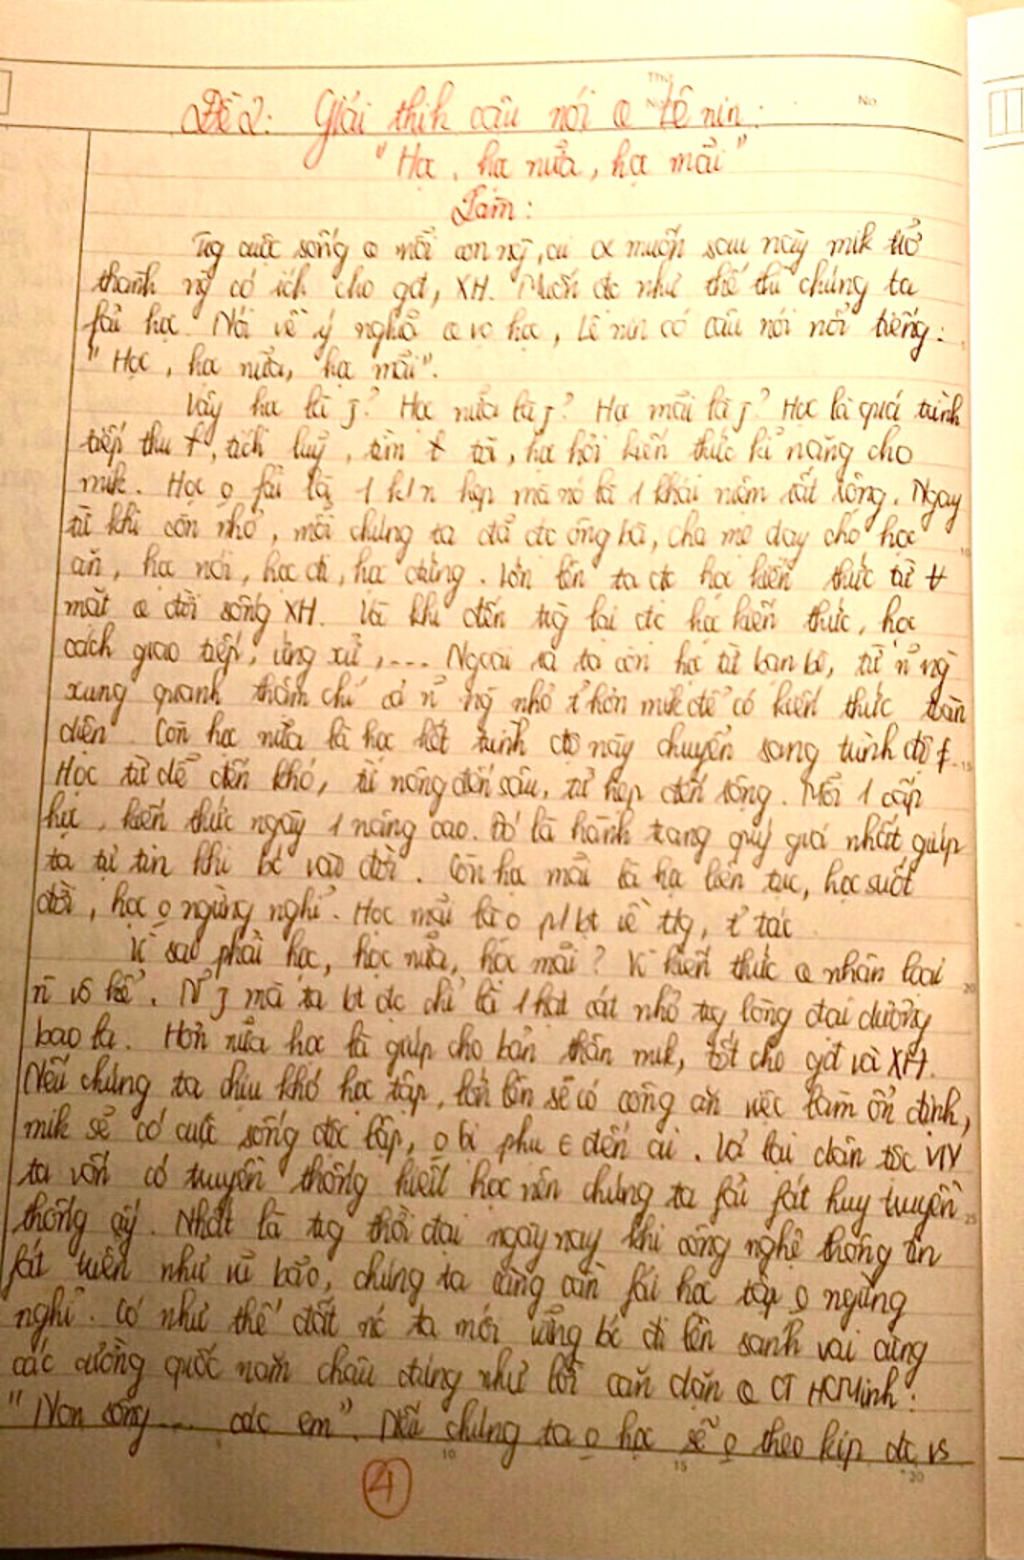 Đề 2: Giải thik câu nói @ Lê nin:
"Học, hc nữa, học mãi"
Làm:
Trg cuộc sống @ mỗi con ng, ai cx muốn sau này mik trở
thành ng có ích cho gđ, XH. Muốn đc như thế thì chúng ta
fải học. Nói về ý nghĩa @ vc học, Lê nin có câu nói nổi tiếng:
"Học, học nữa, học mãi".
Vậy học là j? Học nữa là j? Học mãi là j? Học là quá trình
tiếp thu, tích luỹ, tìm tòi, học hỏi kiến thức kĩ năng cho
mik. Học o fải là 1 k/n hẹp mà nó là 1 khái niệm rất rộng. Ngay
từ khi còn nhỏ, mỗi chúng ta đã đc ông bà, cha mẹ dạy cho học
ăn, học nói, học đi, học đứng. Lớn lên ta đc học kiến thức từ
mặt @ đời sống XH. Và khi đến trg lại đc học kiến thức, học
cách giao tiếp, ứng xử,... Ngoài ra ta còn học từ bạn bè, từ n~ ng
xung quanh thậm chí cả n~ ng nhỏ hơn mik để có kiến thức toàn
diện. Còn học nữa là học hết trình độ này chuyển sang trình độ
Học từ dễ đến khó, từ nông đến sâu, từ hẹp đến rộng. Mỗi 1 cấp
học, kiến thức ngày 1 nâng cao. Đó là hành trang quý giá nhất giúp
ta tự tin khi bc vào đời. Còn học mãi là học liên tục, học suốt
đời, học o ngừng nghỉ. Học mãi là o p/bt về tg, tác
Vì sao phải học, học nữa, học mãi? Vì kiến thức @ nhân loại
n vô kể. N~ j mà ta bt đc chỉ là 1 hạt cát nhỏ trg lòng đại dương
bao la. Hơn nữa học là giúp cho bản thân mik, tốt cho gđ và XH.
Nếu chúng ta chịu khó học tập, lớn lên sẽ có công ăn việc làm ổn định,
mik sẽ có cuộc sống độc lập, o bị phụ € đến ai. Vả lại dân tộc VN
ta vốn có truyền thống hiếu học nên chúng ta fải fát huy truyền
thống ấy. Nhất là trg thời đại ngày nay khi công nghệ thông tin
fát triển như vũ bão, chúng ta càng cần fải học tập o ngừng
nghỉ. Có như thế đất nc ta mới vững bc đi lên sánh vai cùng
các cường quốc năm châu đúng như lời căn dặn @ CT HCMinh:
"Non sông .... các em". Nếu chúng ta o học sẽ o theo kịp đc vs
4